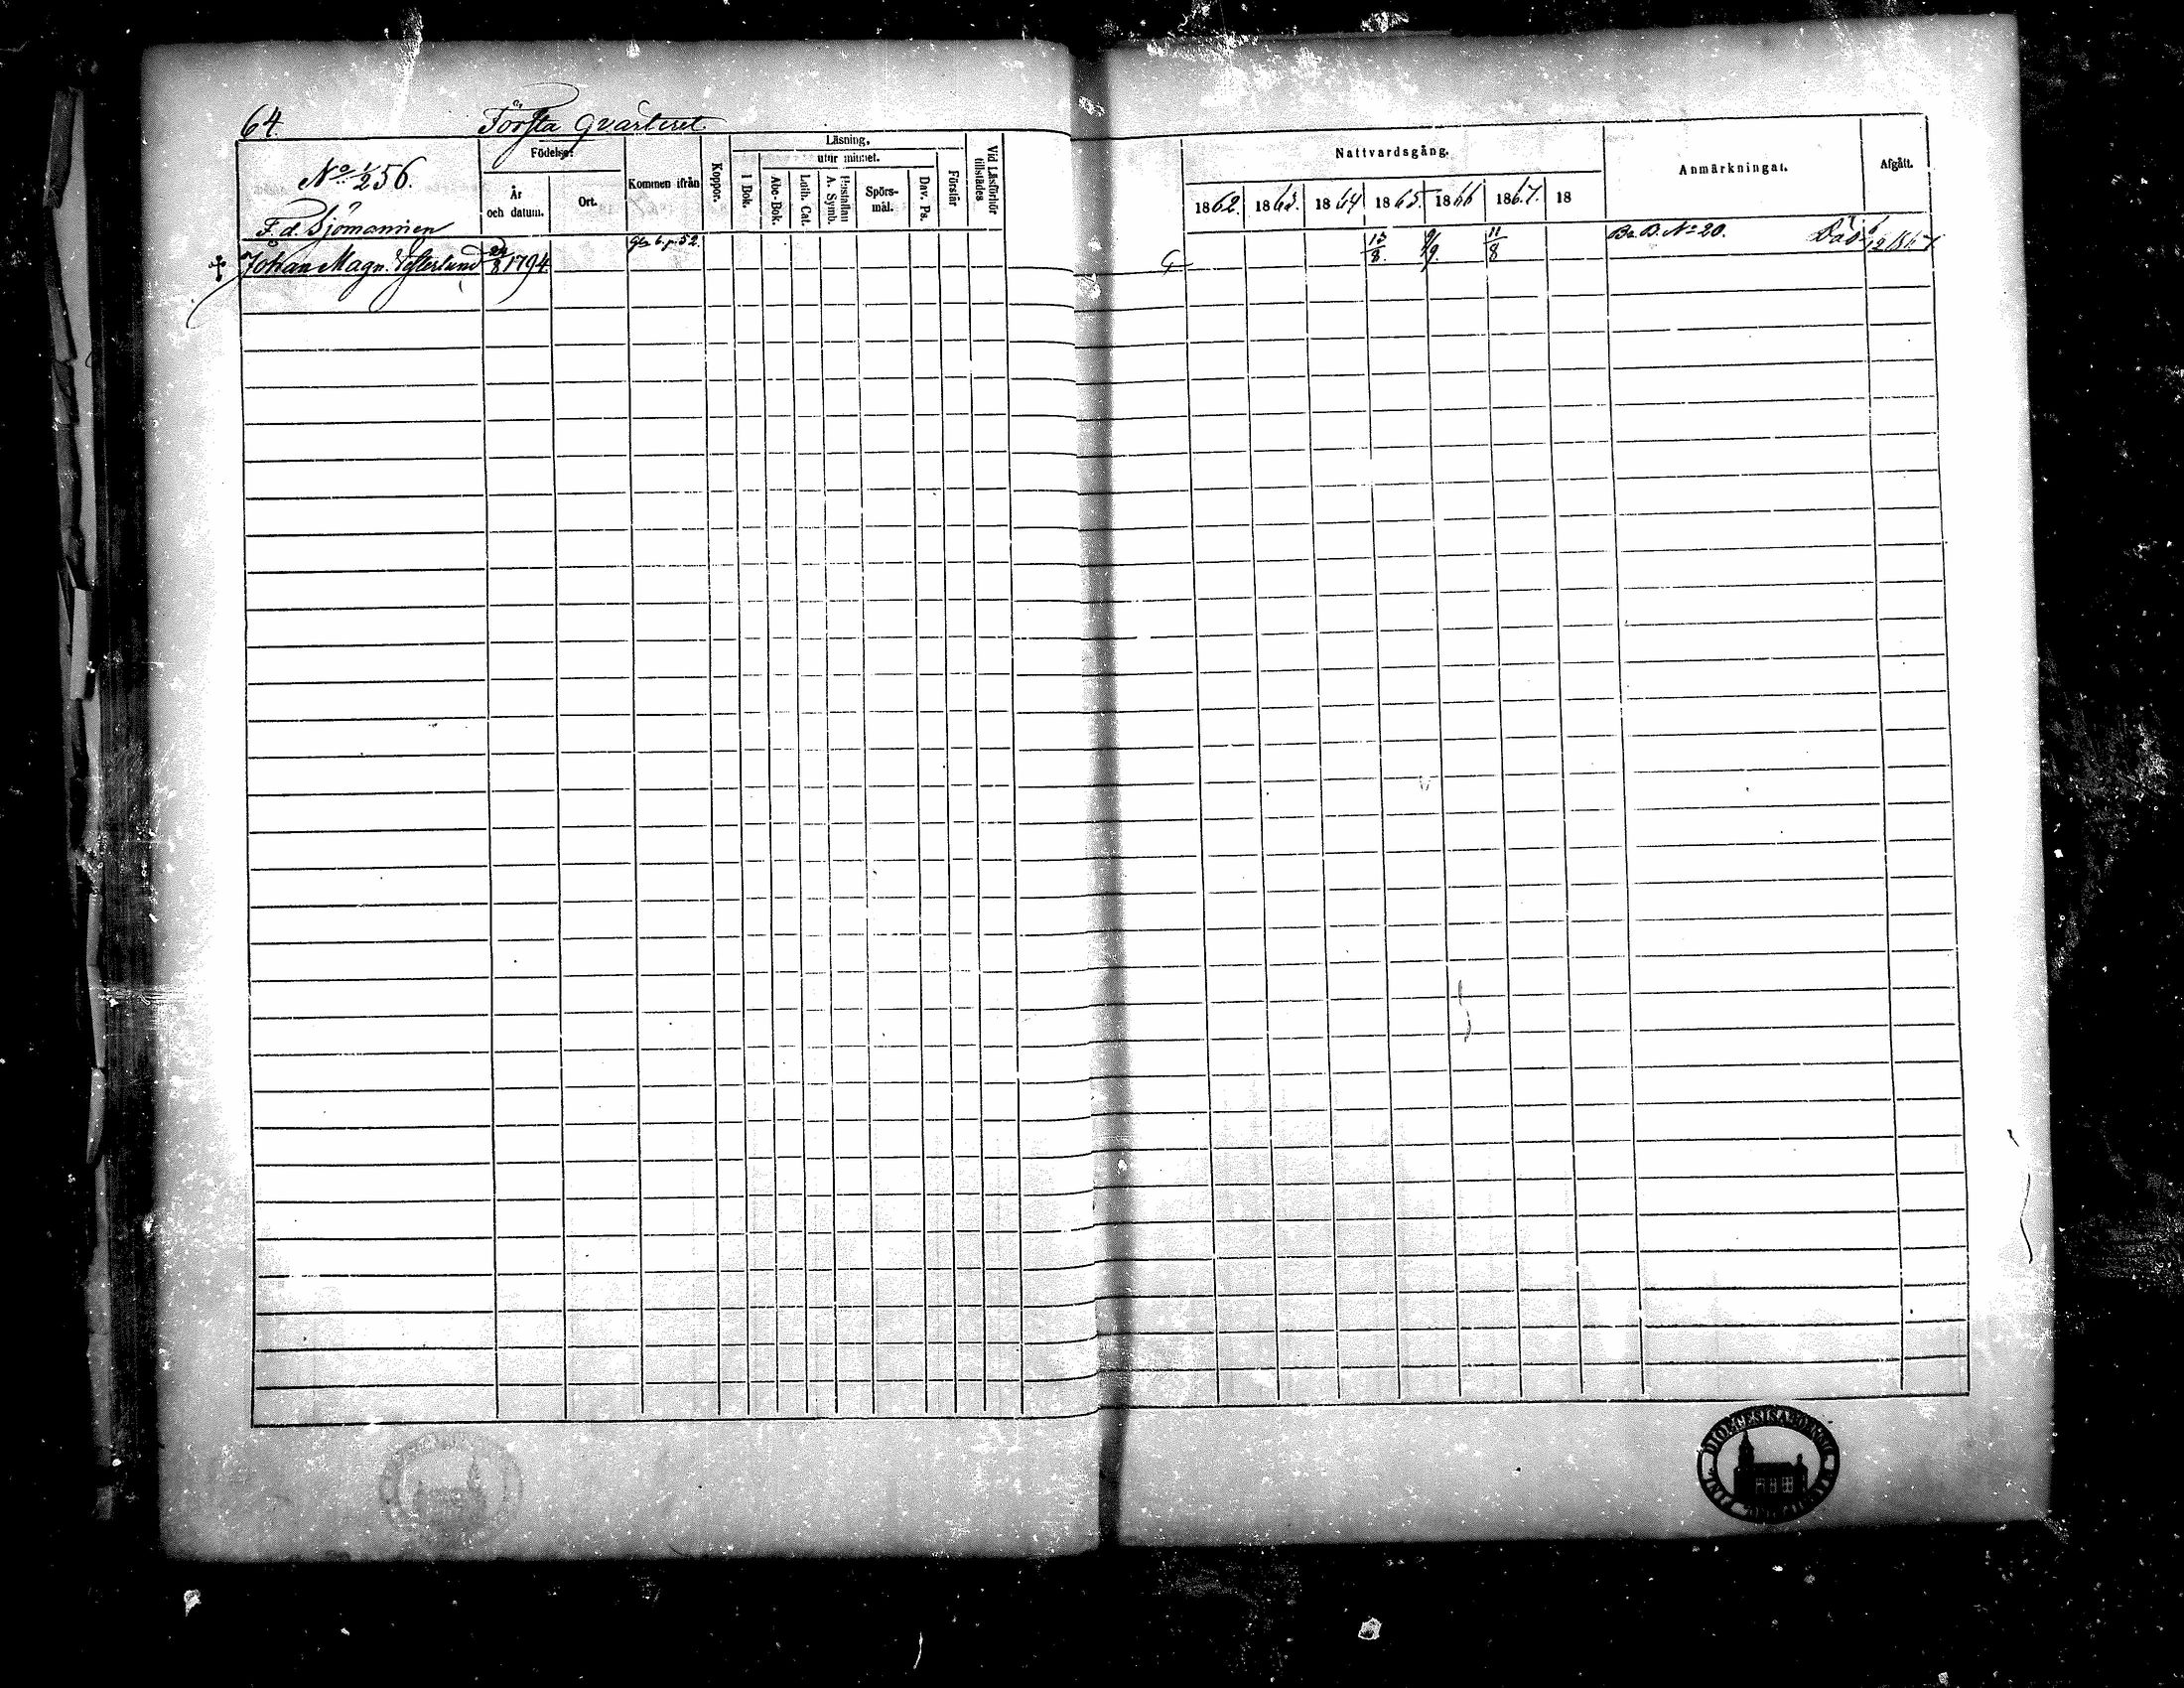 64.
Första Qvarteret
Födelse:
År och datum.
Ort.
Kommen ifrån
Koppor.
Läsning,
utur minnet.
I Bok.
Abc-Bok.
Luth. Cat.
Hustaflan A. Symb.
Spörs-mål.
Dav. Ps.
Förstår
Vid Läsförhör tillstädes
Nattvardsgång.
1862. 1863. 1864 1865. 1866 1867. 18
Anmärkningar.
Afgått.
No 1/256.
F. d. Sjömannen
Johan Magn. Vesterlund 24/8 1794. Gla b. p. 52. 13/8. 9/9 11/8 Ba B. No 20. Död 6/12 1867
DIOECESIS ABOENSIS